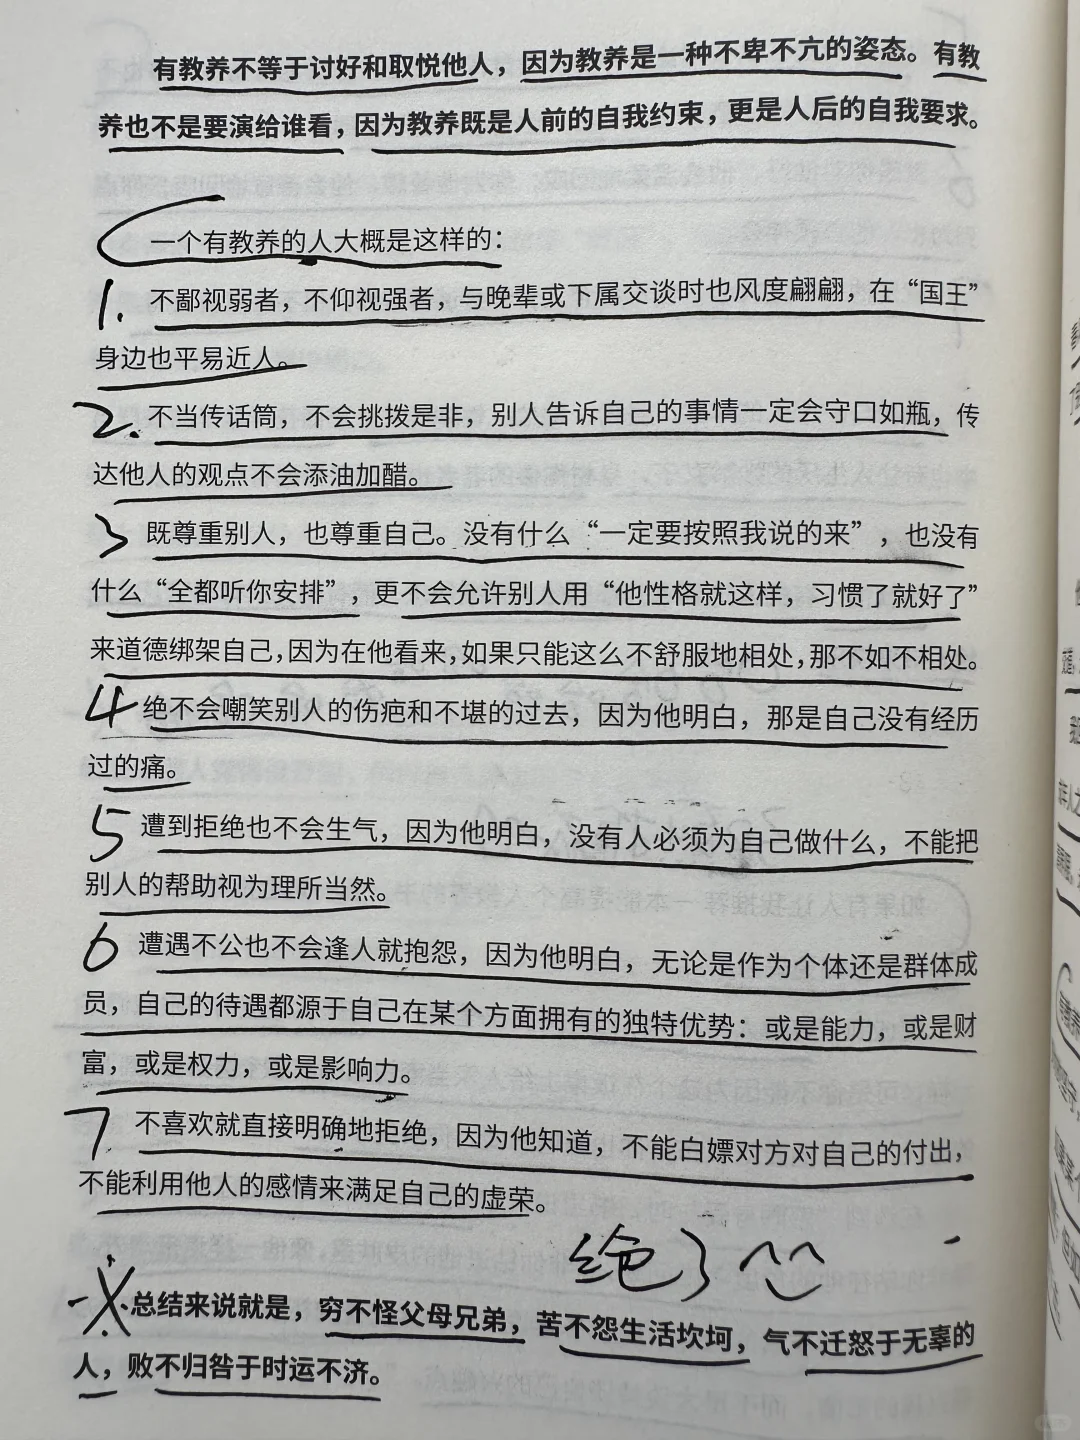 有教养不等于讨好和取悦他人，因为教养是一种不卑不亢的姿态。有教
养也不是要演给谁看，因为教养既是人前的自我约束，更是人后的自我要求。
一个有教养的人大概是这样的：
1. 不鄙视弱者，不仰视强者，与晚辈或下属交谈时也风度翩翩，在“国王”
身边也平易近人。
2. 不当传话筒，不会挑拨是非，别人告诉自己的事情一定会守口如瓶，传
达他人的观点不会添油加醋。
3 既尊重别人，也尊重自己。没有什么“一定要按照我说的来”，也没有
什么“全都听你安排”，更不会允许别人用“他性格就这样，习惯了就好了”
来道德绑架自己，因为在他看来，如果只能这么不舒服地相处，那不如不相处。
4 绝不会嘲笑别人的伤疤和不堪的过去，因为他明白，那是自己没有经历
过的痛。
5 遭到拒绝也不会生气，因为他明白，没有人必须为自己做什么，不能把
别人的帮助视为理所当然。
6 遭遇不公也不会逢人就抱怨，因为他明白，无论是作为个体还是群体成
员，自己的待遇都源于自己在某个方面拥有的独特优势：或是能力，或是财
富，或是权力，或是影响力。
7 不喜欢就直接明确地拒绝，因为他知道，不能白嫖对方对自己的付出，
不能利用他人的感情来满足自己的虚荣。
绝了
总结来说就是，穷不怪父母兄弟，苦不怨生活坎坷，气不迁怒于无辜的
人，败不归咎于时运不济。